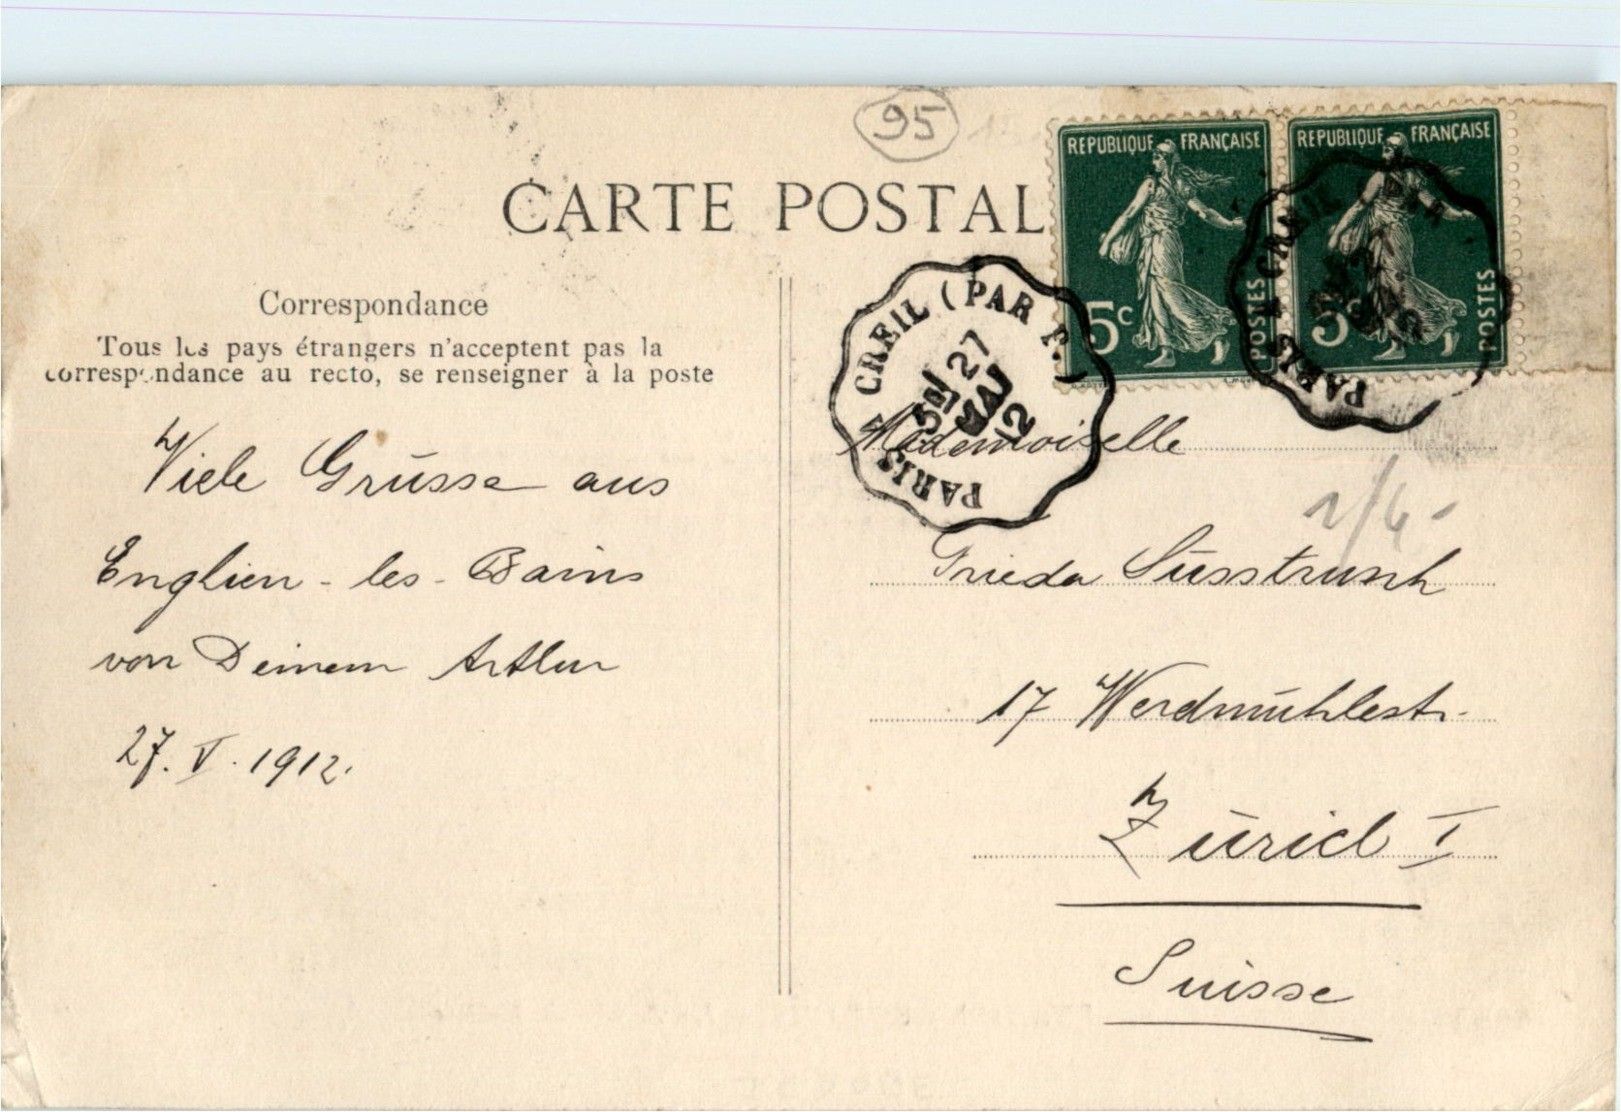 95
CARTE POSTAL
REPUBLIQUE FRANÇAISE
5c
POSTES
REPUBLIQUE FRANÇAISE
5c
POSTES
PARIS A CREIL (PAR P.)
27
MAI
12
PARIS A CREIL (PAR
Correspondance
Tous les pays étrangers n'acceptent pas la
correspondance au recto, se renseigner à la poste
Viele Grüsse aus
Englien-les-Bains
von Deinem Arthur
27. V. 1912.
Mademoiselle
Frieda Süsstrunk
17 Werdmühlestr.
Zürich I
Suisse